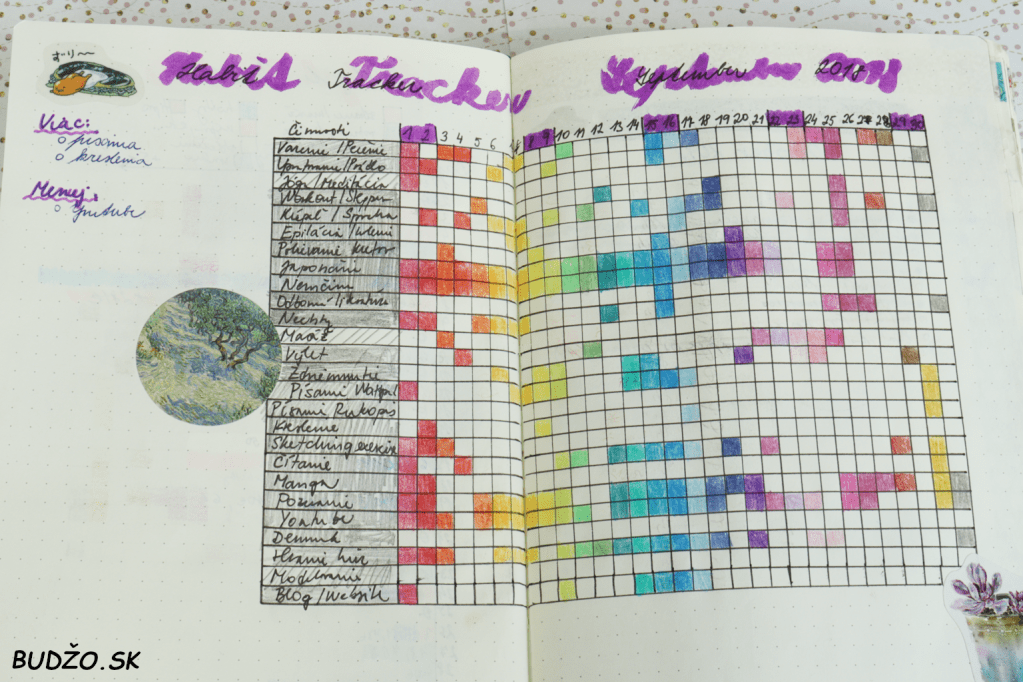 ずり〜
Habit Tracker
September 2018
Viac:
o písania
o kreslenia
Menej:
o youtube
Činnosti
1 2 3 4 5 6 8 9 10 11 12 13 14 15 16 17 18 19 20 21 22 23 24 25 26 27 28 29 30
Varenie / Pečenie
Upratovanie / Prádlo
Jóga / Meditácia
Workout / Steper
Kúpeľ / Sprcha
Epilácia / holenie
Polievanie kvetov
Japončina
Nemčina
Odborná literatúra
Nechty
Masáž
Výlet
Zdriemnutie
Písanie Wattpad
Písanie Rukopis
Kreslenie
Sketching exercise
Čítanie
Manga
Pozeranie
Youtube
Denník
Hranie hier
Modelovanie
Blog / Webzik
BUDŽO.SK